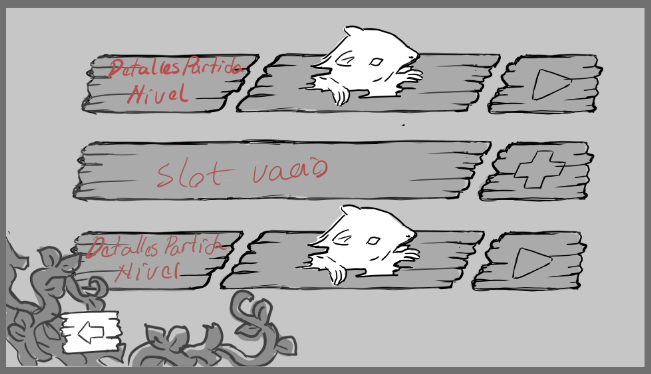 Detalles Partida
Nivel
Slot vacio
Detalles Partida
Nivel